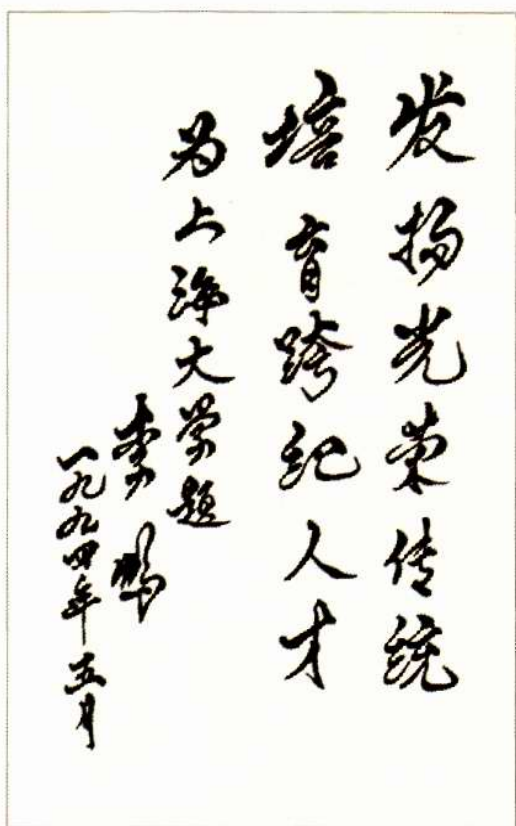 发扬光荣传统
培育跨纪人才
为上海大学题
李鹏
一九九四年五月